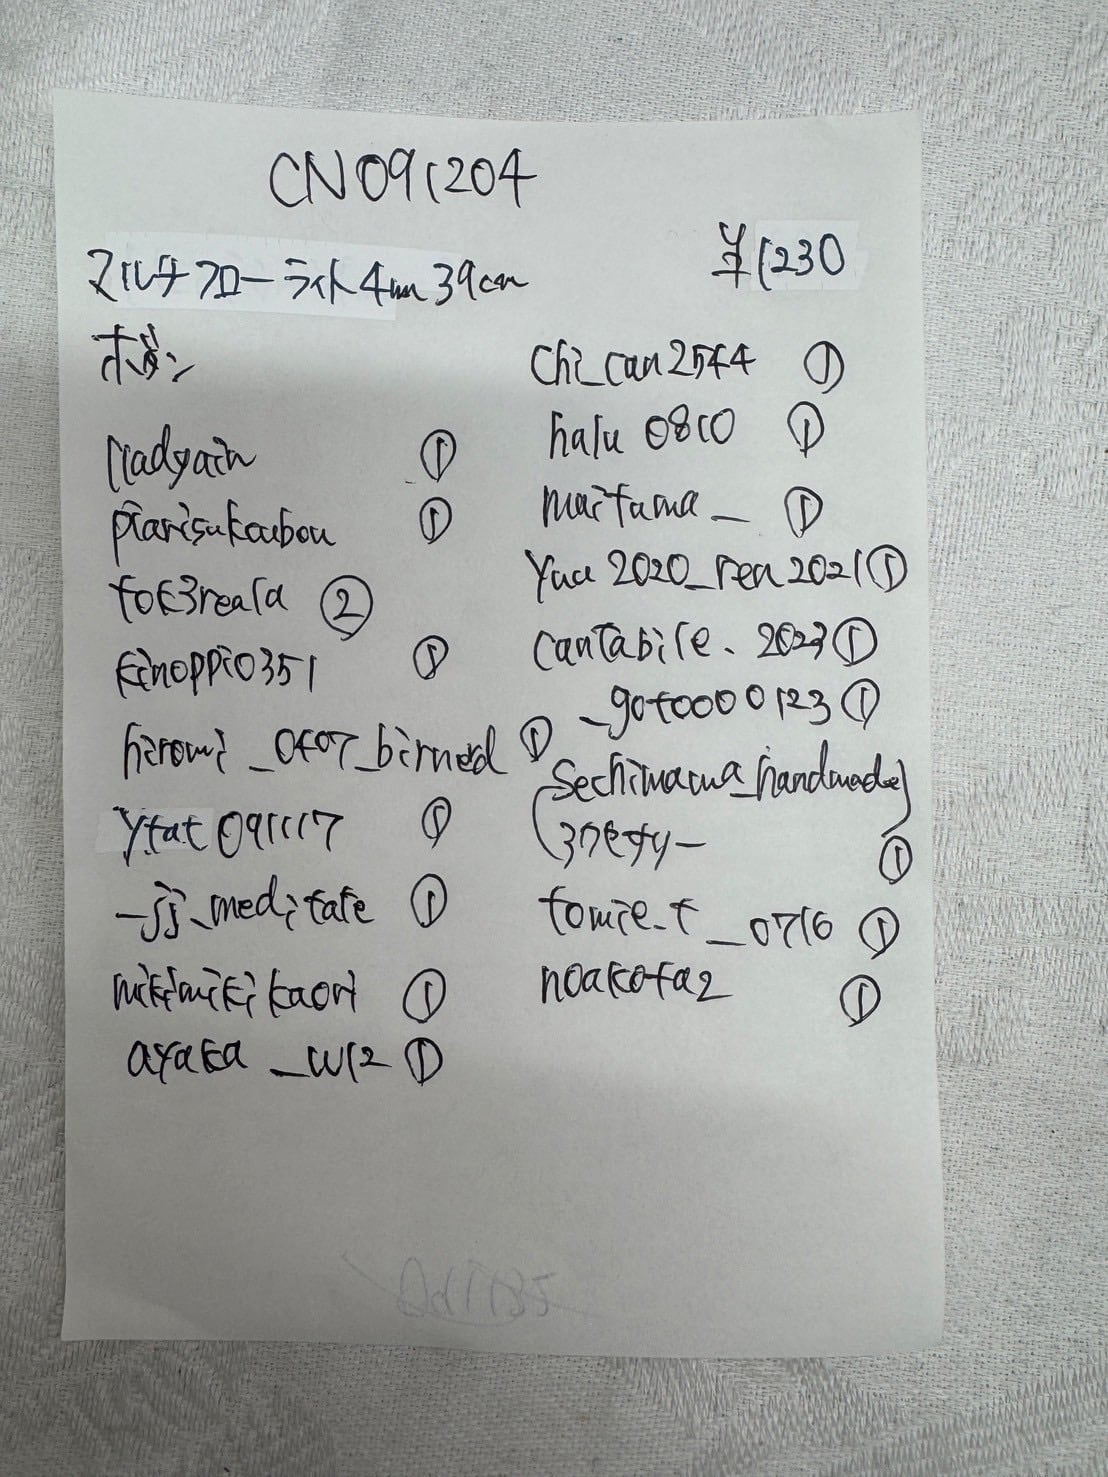 CN091204
マルチフローライト4mm39cm
¥1230
ボタン
piarisukoubou ①
tok3reala ②
kinoppio351 ①
hiromi_0407_birned ①
ytat091117 ①
_jj_meditate ①
mikimikikaori ①
ayaka_w12 ①
chi_can2544 ①
halu0810 ①
maifama_ ①
yuu2020_ren2021 ①
cantabile.2023 ①
_gotoooo0123 ①
sechimama_handmade
①
tomie.t_0716 ①
noakota2 ①